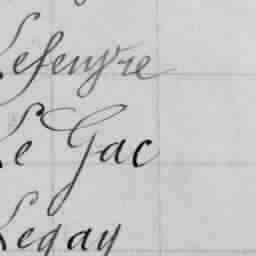 Lefeuvre
Le Gac
Legay